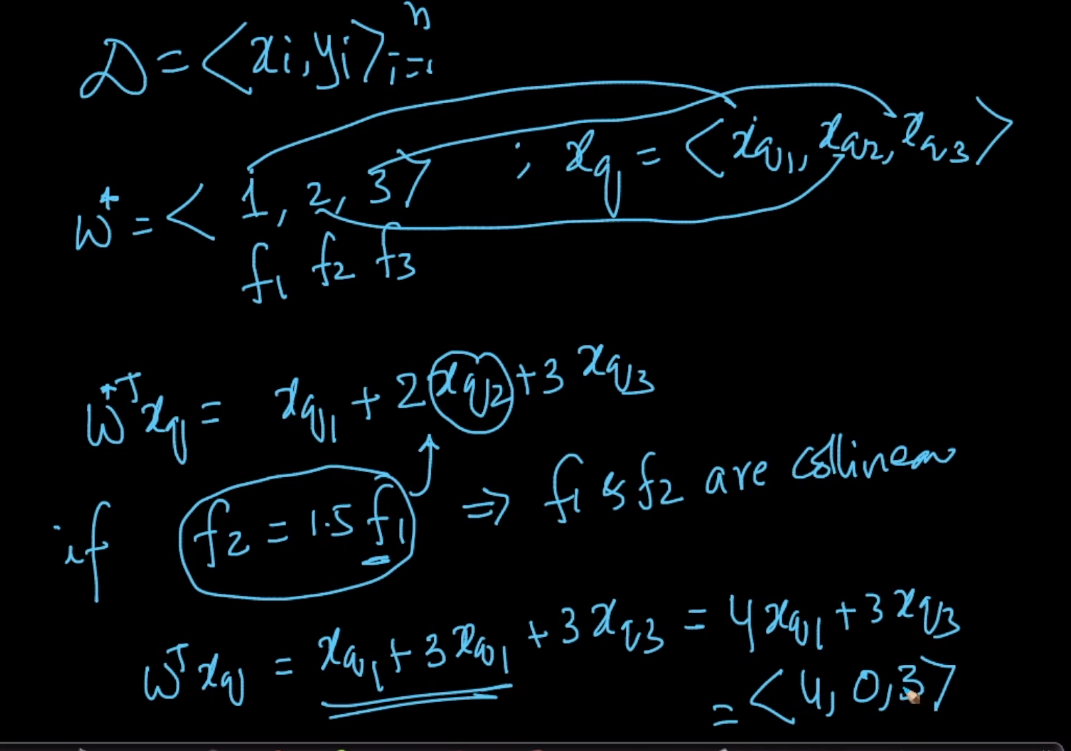 D = <xi, yi>ⁿᵢ₌₁
w* = < 1, 2, 3 > ; xq = <xq1, xq2, xq3>
f1 f2 f3
w*ᵀxq = xq1 + 2 xq2 + 3 xq3
if f2 = 1.5 f1 ⇒ f1 & f2 are collinear
wᵀxq = xq1 + 3xq1 + 3xq3 = 4xq1 + 3xq3
= <4, 0, 3>